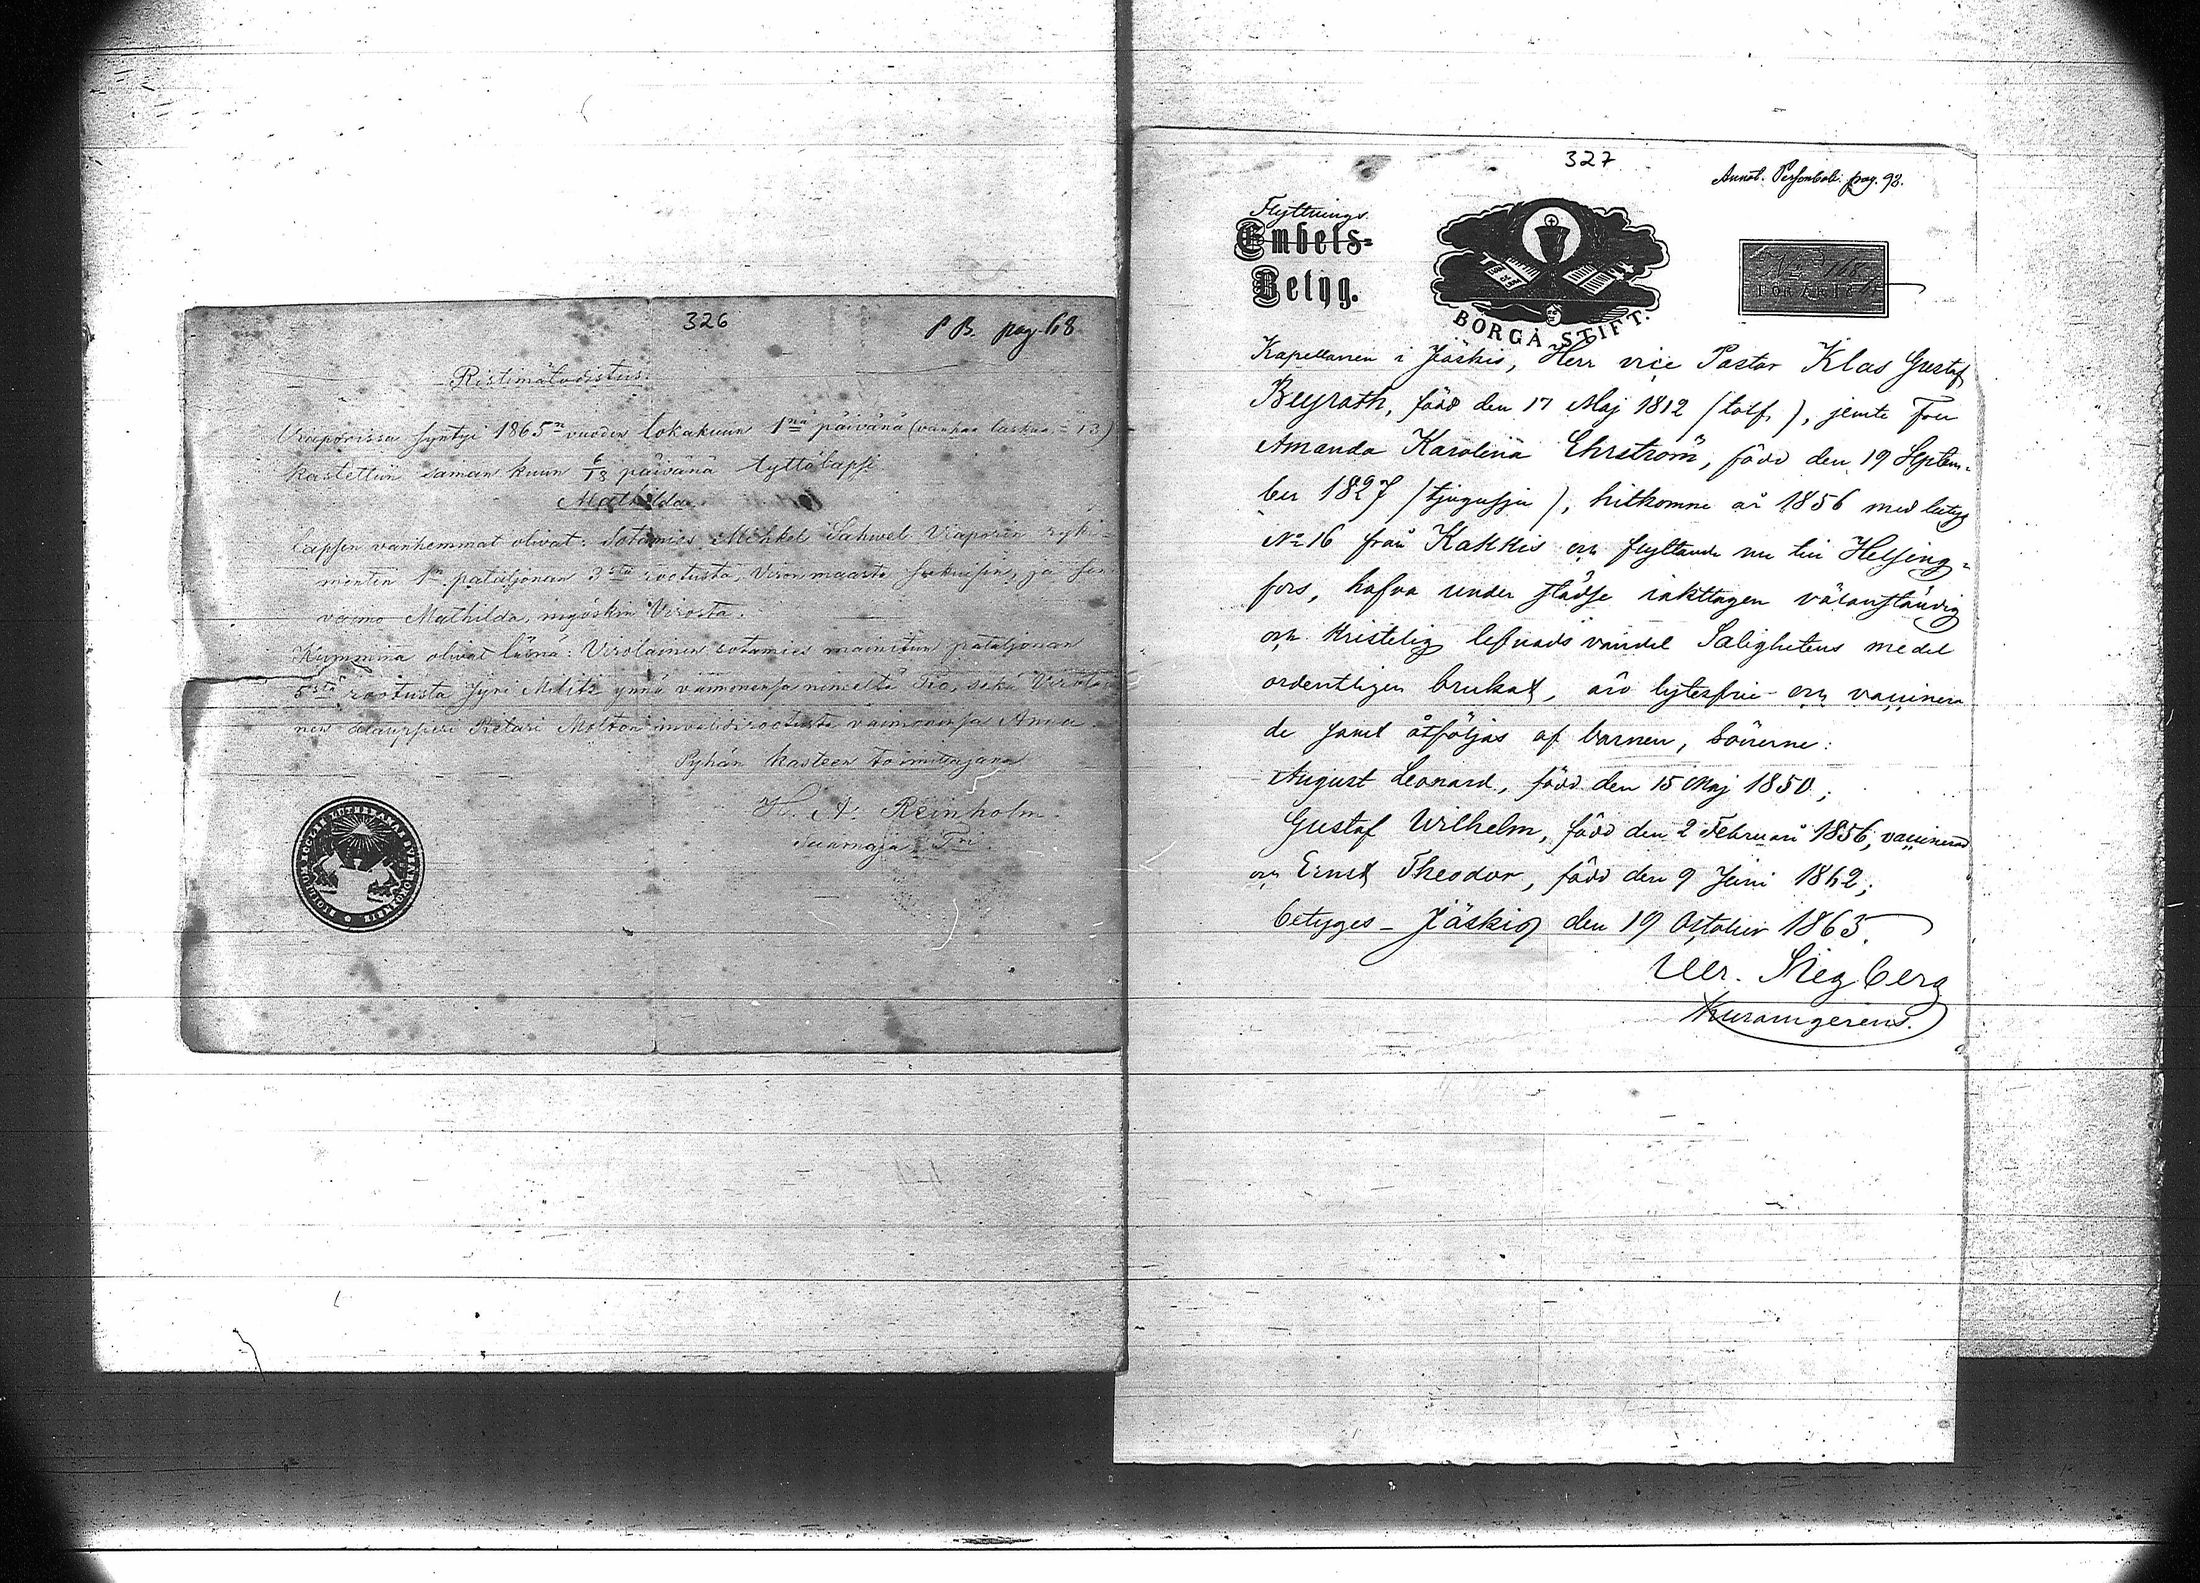 326
P B. pag 68
Ristimätodistus.
Viaporissa syntyi 1865n vuoden lokakuun 1nä päivänä (vanhaa laskua = 13)
kastettiin saman kuun 6/18 päivänä tyttölapsi
Mathilda.
lapsen vanhemmat olivat: Sotamies Mihkel Sahwel Viaporin ryk=
mentin 1n pataljonan 3sta rootusta, Vironmaasta, ja
vaimo Mathilda, myöskin Virosta.
Kummina olivat läsnä: Virolainen sotamies mainitun pataljonan
5stä rootusta Jyri Militz ynnä vaimonensa nimeltä sekä Virolai
nen Petari Moltron invalidirootusta vaimonensa Anna
Pyhän kasteen toimittajana
H. A. Reinholm.
327
Annot. Personbok. pag. 93.
Flyttnings
Embets=
Betyg.
BORGÅ STIFT.
No 168
Kapellanen i Jääskis, Herr vice Pastor Klas Gustaf
Beyrath, född den 17 Maj 1812 (tolf), jemte Fru
Amanda Karolina Ehrström, född den 19 Septem=
ber 1827 (tjugusju), hitkomne år 1856 med betyg
No 16 från Kakkis och flyttande nu till Helsing=
fors, hafva under städse iakttagen välanständig
och kristelig lefnads vandel Salighetens medel
ordentligen brukat, äro lytesfrie och vaccinera
de samt åtföljas af barnen, Sönerne:
August Leonard, född den 15 Maj 1850;
Gustaf Wilhelm, född den 2 Februari 1856, vaccinerad
och Ernst Theodor, född den 9 Juni 1862;
betyges _ Jääskis den 19 October 1865.
Ulr. Siegberg
Kuram gerens.